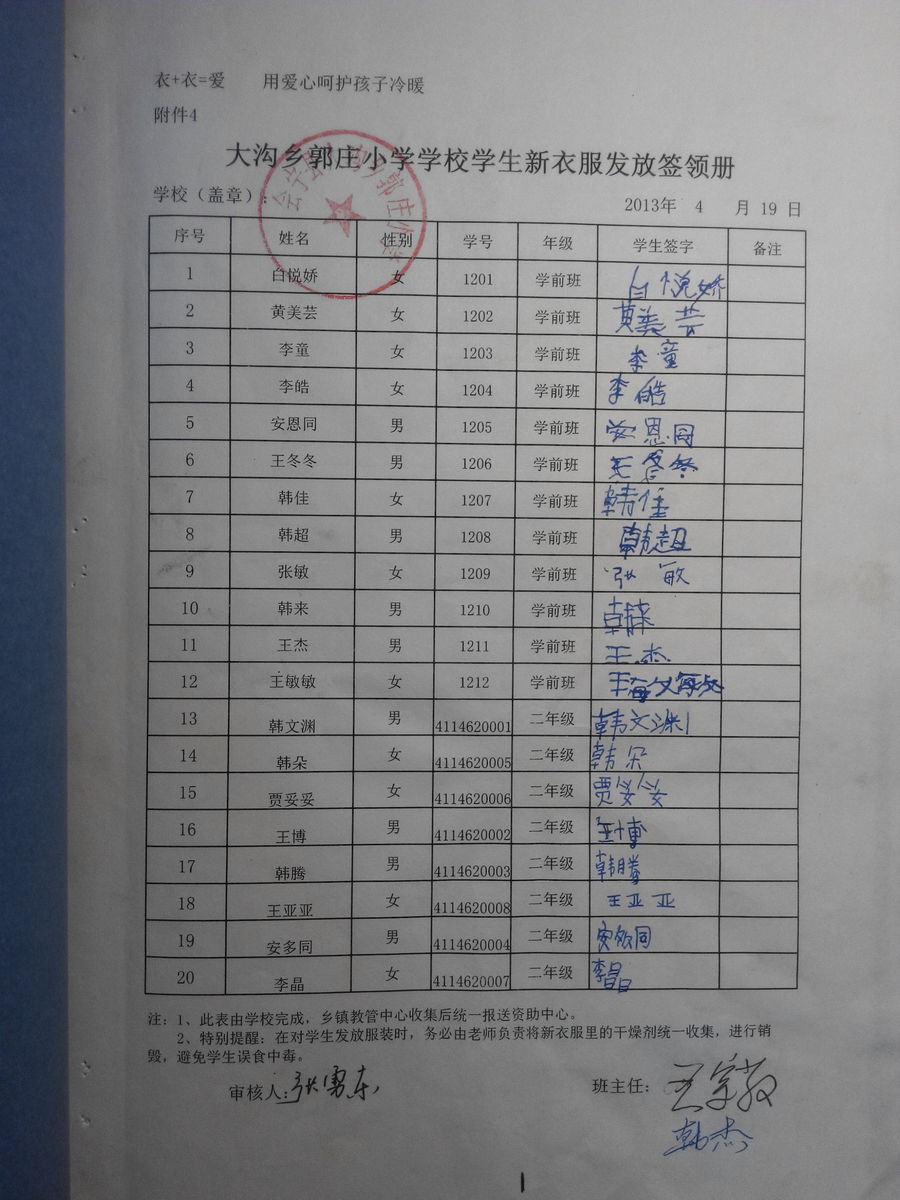 衣+衣=爱 用爱心呵护孩子冷暖
附件4
大沟乡郭庄小学学校学生新衣服发放签领册
学校（盖章）： 2013年 4 月 19 日
序号 姓名 性别 学号 年级 学生签字 备注
1 白悦娇 女 1201 学前班 白悦娇
2 黄美芸 女 1202 学前班 黄美芸
3 李童 女 1203 学前班 李童
4 李皓 女 1204 学前班 李皓
5 安恩同 男 1205 学前班 安恩同
6 王冬冬 男 1206 学前班 王冬冬
7 韩佳 女 1207 学前班 韩佳
8 韩超 男 1208 学前班 韩超
9 张敏 女 1209 学前班 张敏
10 韩来 男 1210 学前班 韩来
11 王杰 男 1211 学前班 王杰
12 王敏敏 女 1212 学前班 王敏敏
13 韩文渊 男 4114620001 二年级 韩文渊
14 韩朵 女 4114620005 二年级 韩朵
15 贾妥妥 女 4114620006 二年级 贾妥妥
16 王博 男 4114620002 二年级 王博
17 韩腾 男 4114620003 二年级 韩腾
18 王亚亚 女 4114620008 二年级 王亚亚
19 安多同 男 4114620004 二年级 安多同
20 李晶 女 4114620007 二年级 李晶
注：1、此表由学校完成，乡镇教管中心收集后统一报送资助中心。
2、特别提醒：在对学生发放服装时，务必由老师负责将新衣服里的干燥剂统一收集，进行销
毁，避免学生误食中毒。
审核人：张勇东 班主任：王宗教
韩杰
1